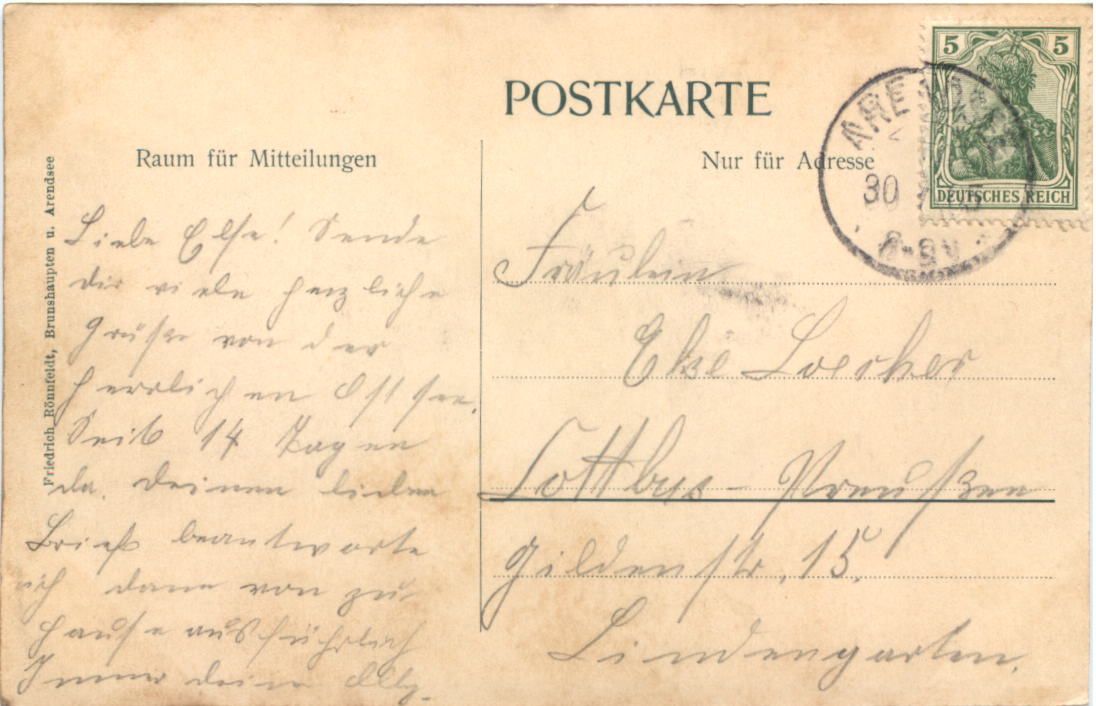 POSTKARTE
Raum für Mitteilungen
Nur für Adresse
Friedrich Rönnfeldt, Brunshaupten u. Arendsee
5 5
DEUTSCHES REICH
ARENDSEE
30
8-9V
Liebe Else! Sende
dir viele herzliche
Grüße von der
herrlichen Ostsee.
Seit 14 Tagen
da. Deinen lieben
Brief beantworte
ich dann von zu
Hause ausführlich
Immer deine
Fräulein
Else Loecker
Cottbus - Preußen
Gildenstr. 15.
Lindengarten.